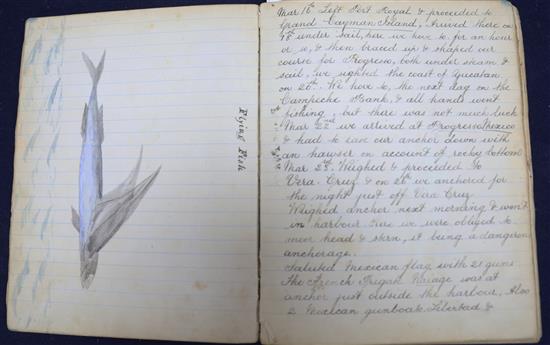 Flying Fish
Mar 16th Left Port Royal & proceeded to
Grand Cayman Island, arrived there on
18th under sail, here we hove to for an hour
or so, & then braced up & shaped our
course for Progreso, both under steam &
sail, we sighted the coast of Yucatan
on 20th. We hove to, the next day on the
Campeche Bank, & all hands went
fishing, but there was not much luck
Mar 22nd we arrived at Progreso, Mexico
& had to our anchor down with
an hawser on account of rocky bottom
Mar 23rd. Weighed & proceeded to
Vera Cruz & on 26 we anchored for
the night just off Vera Cruz
Weighed anchor next morning & went
in harbour. Here we were obliged to
moor head & stern, it being a dangerous
anchorage.
Saluted Mexican flag with 21 guns
The French Frigate was at
anchor just outside the harbour. Also
2 Mexican gunboats Libertad &